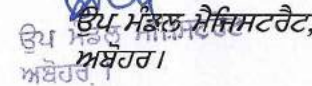 ਉਪ ਮੰਡਲ ਮੈਜਿਸਟਰੈਟ,
ਅਬੋਹਰ।
ਉਪ ਮੰਡਲ ਮੈਜਿਸਟਰੇਟ
ਅਬੋਹਰ।